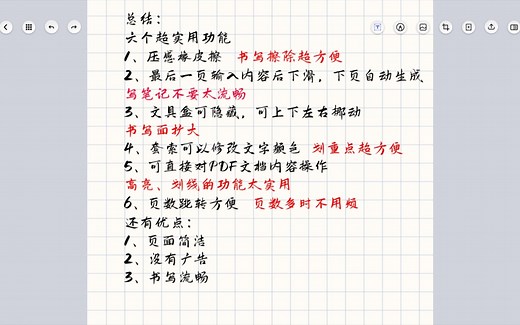 总结：
六个超实用功能
1、压感橡皮擦 书写擦除超方便
2、最后一页输入内容后下滑，下页自动生成
写笔记不要太流畅
3、文具盒可隐藏，可上下左右挪动
书写面抄大
4、套索可以修改文字颜色 划重点超方便
5、可直接对PDF文档内容操作
高亮、划线的功能太实用
6、页数跳转方便 页数多时不用烦
还有优点：
1、页面简洁
2、没有广告
3、书写流畅